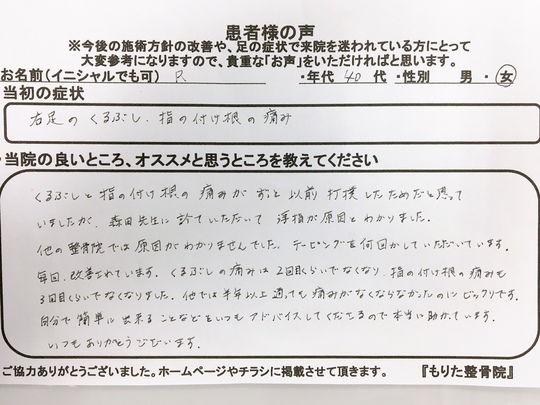 患者様の声
※今後の施術方針の改善や、足の症状で来院を迷われている方にとって
大変参考になりますので、貴重な「お声」をいただければと思います。
お名前(イニシャルでも可) R. ・年代 40 代 ・性別 男 ・ 女
当初の症状
右足の くるぶし、指の付け根の痛み
・当院の良いところ、オススメと思うところを教えてください
くるぶしと指の付け根の痛みが ずっと以前 打撲したためだと思って
いましたが、森田先生に診ていただいて 浮指が原因とわかりました。
他の整骨院では原因がわかりませんでした。テーピングを何回かしていただいています。
毎回、改善されています。くるぶしの痛みは2回目くらいでなくなり、指の付け根の痛みも
3回目くらいでなくなりました。他では半年以上通っても痛みがなくならなかったのにビックリです。
自分で簡単に出来ることなどをいつもアドバイスしてくださるので本当に助かっています。
いつもありがとうございます。
ご協力ありがとうございました。ホームページやチラシに掲載させて頂きます。 『もりた整骨院』